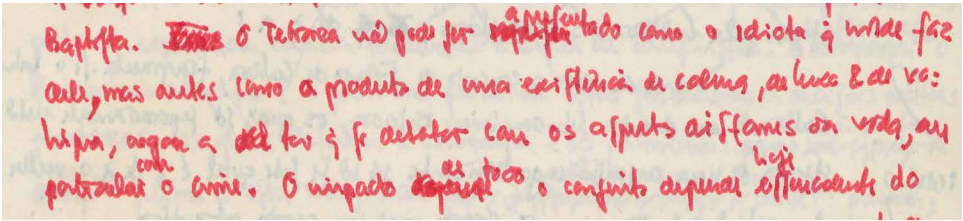 Baptista. O Tetrarca não pode ser apresentado como o idiota q Wilde faz
dele, mas antes como o produto de uma existência de calma, de luxo & de vo:
lúpia, agora a ter q se debater com os aspectos da vida, em
particular com o crime. O impacto de todo o conjunto depende hoje essencialmente do